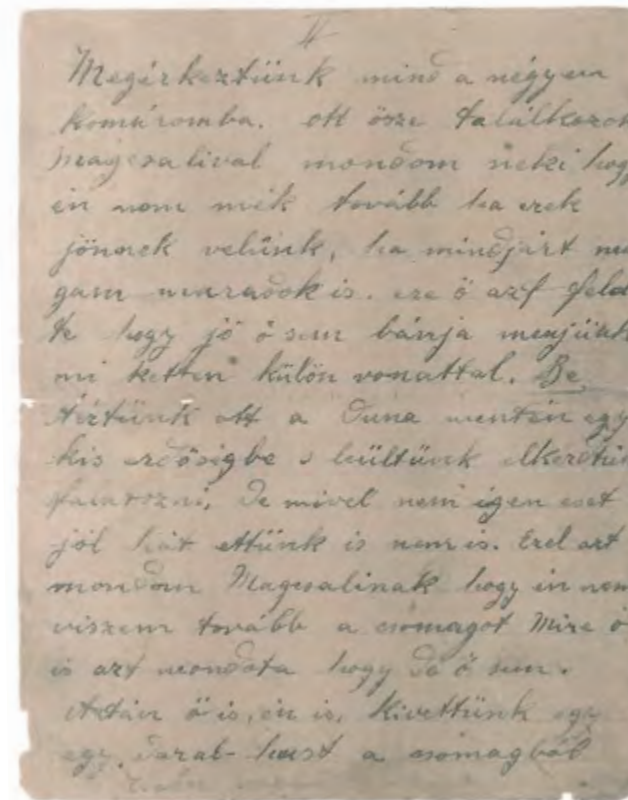 II
Megérkeztünk mind a négyen
Komáromba. ott össze találkozok
Magcsalival mondom neki hogy
én nem mék tovább ha ezek
jönnek velünk, ha mindjárt ma
gam maradok is. ere ő azf felel
te hogy jó ő sem bánja menjünk
mi ketten külön vonattal. Be
ott a Duna mentén egy
kis erdőségbe s leültünk elkezdtün
de mivel nem igen eset
jól hát ettünk is nem is. Ezel azt
mondom Magcsalinak hogy én nem
viszem tovább a csomagot Mire ő
is azt mondota hogy dá ő sem.
Aztán ő is, én is, Kivettünk egy
egy, darab húst a csomagból